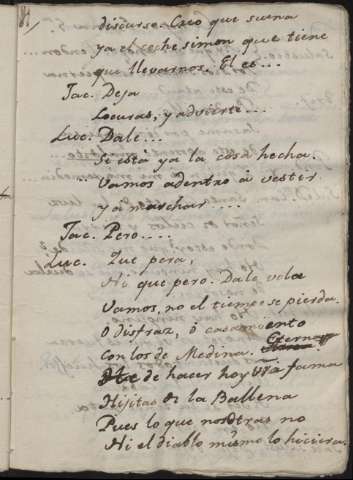 discurse. Creo que suena
ya el coche simon que tiene
que llevarnos. El es...
Jac. Deja
Locuras, y advierte...
Luc. Dale...
Si está ya la cosa hecha.
Vamos adentro à vestir
y à marchar....
Jac. Pero....
Luc. Que pera,
Ni que pero. Dale vola
Vamos, no el tiempo se pierda.
O disfraz, ò casamiento
con los de Medina. Eterna
de hacer hoy fama
Hijitas de la Ballena
Pues lo que nosotras no
Ni el diablo mismo lo hiciera.